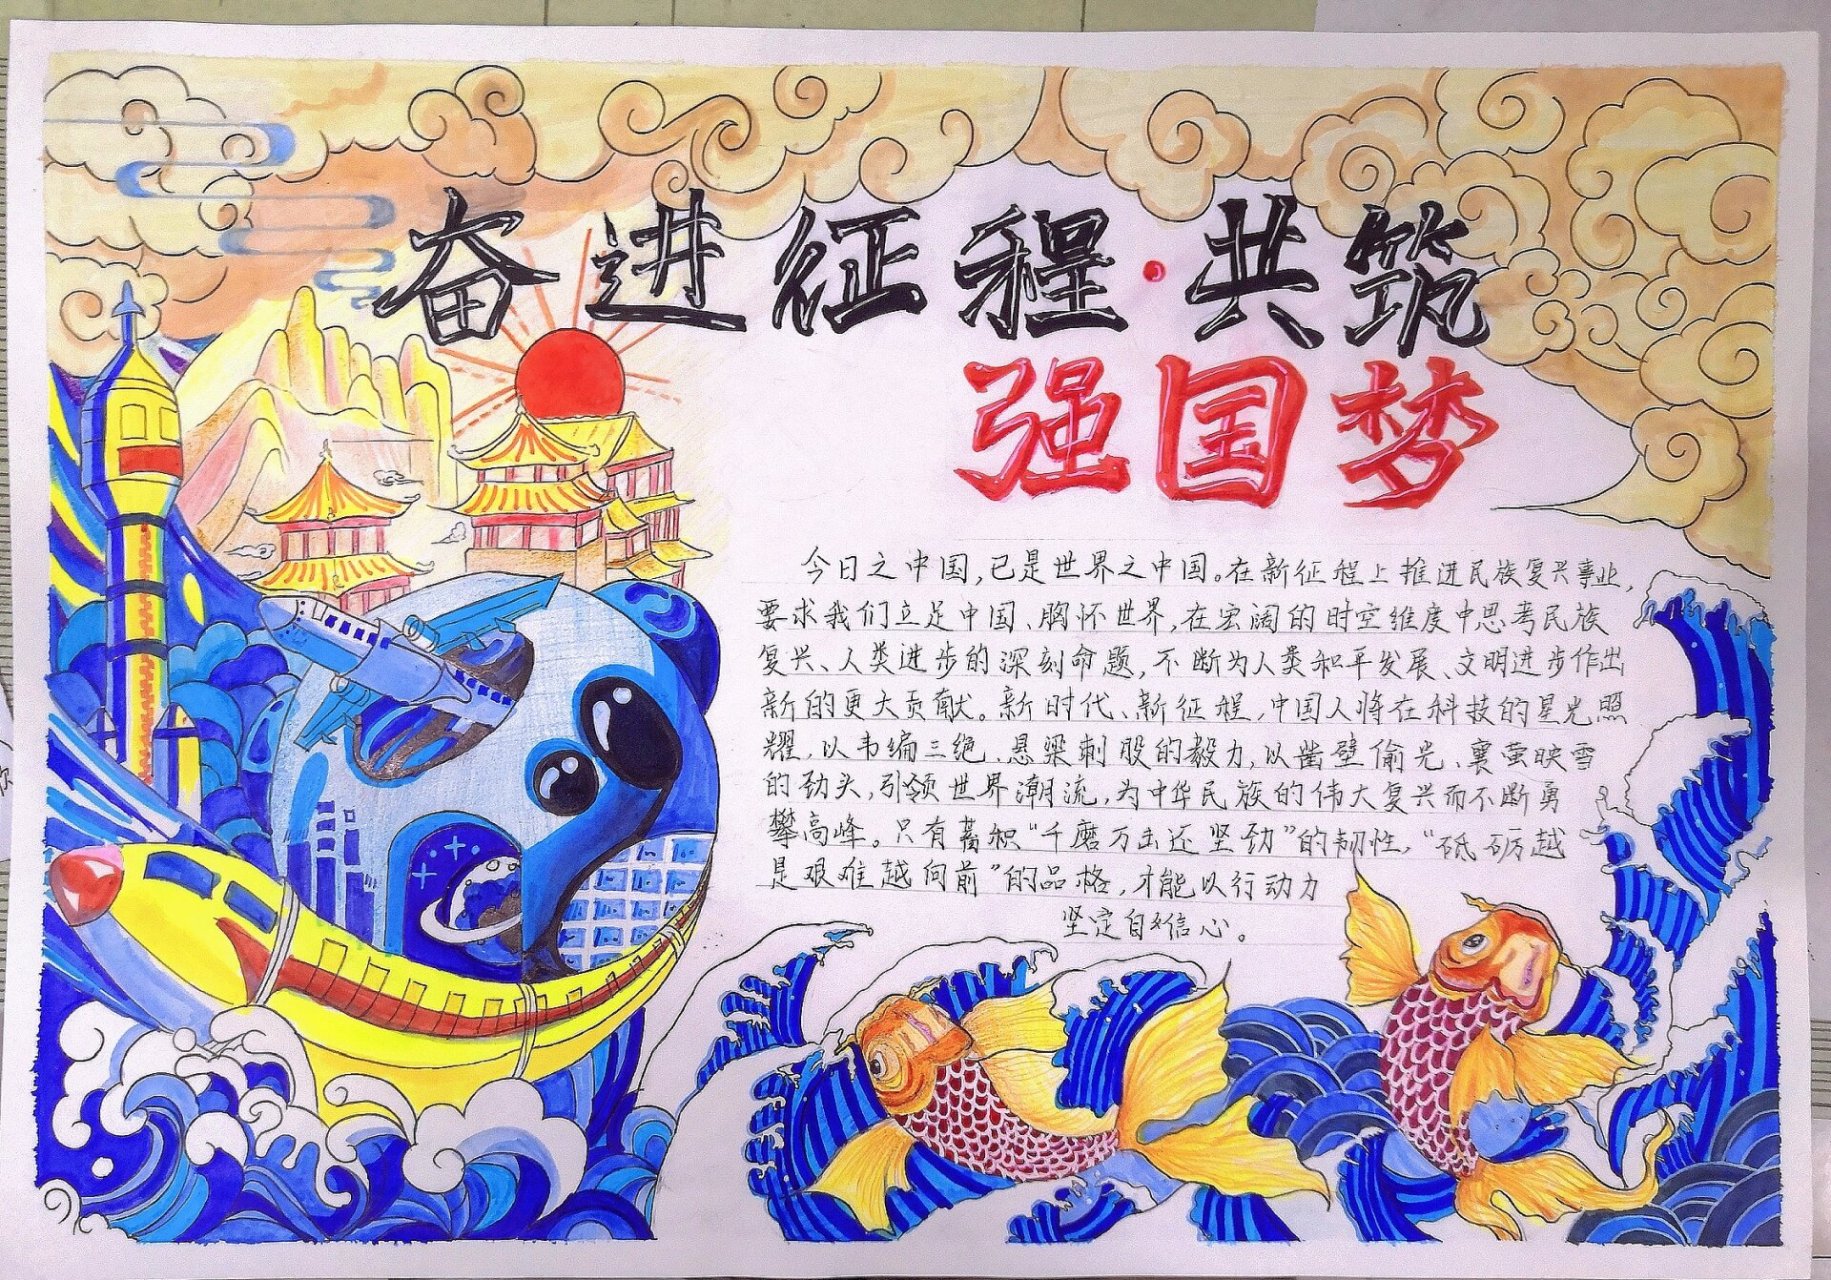 奋进征程·共筑
强国梦
今日之中国,已是世界之中国。在新征程上推进民族复兴事业,
要求我们立足中国、胸怀世界,在宏阔的时空维度中思考民族
复兴、人类进步的深刻命题,不断为人类和平发展、文明进步作出
新的更大贡献。新时代、新征程,中国人将在科技的星光照
耀,以韦编三绝、悬梁刺股的毅力,以凿壁偷光、囊萤映雪
的劲头,引领世界潮流,为中华民族的伟大复兴而不断勇
攀高峰。只有蓄积“千磨万击还坚劲”的韧性,“砥砺越
是艰难越向前”的品格,才能以行动力
坚定自信心。